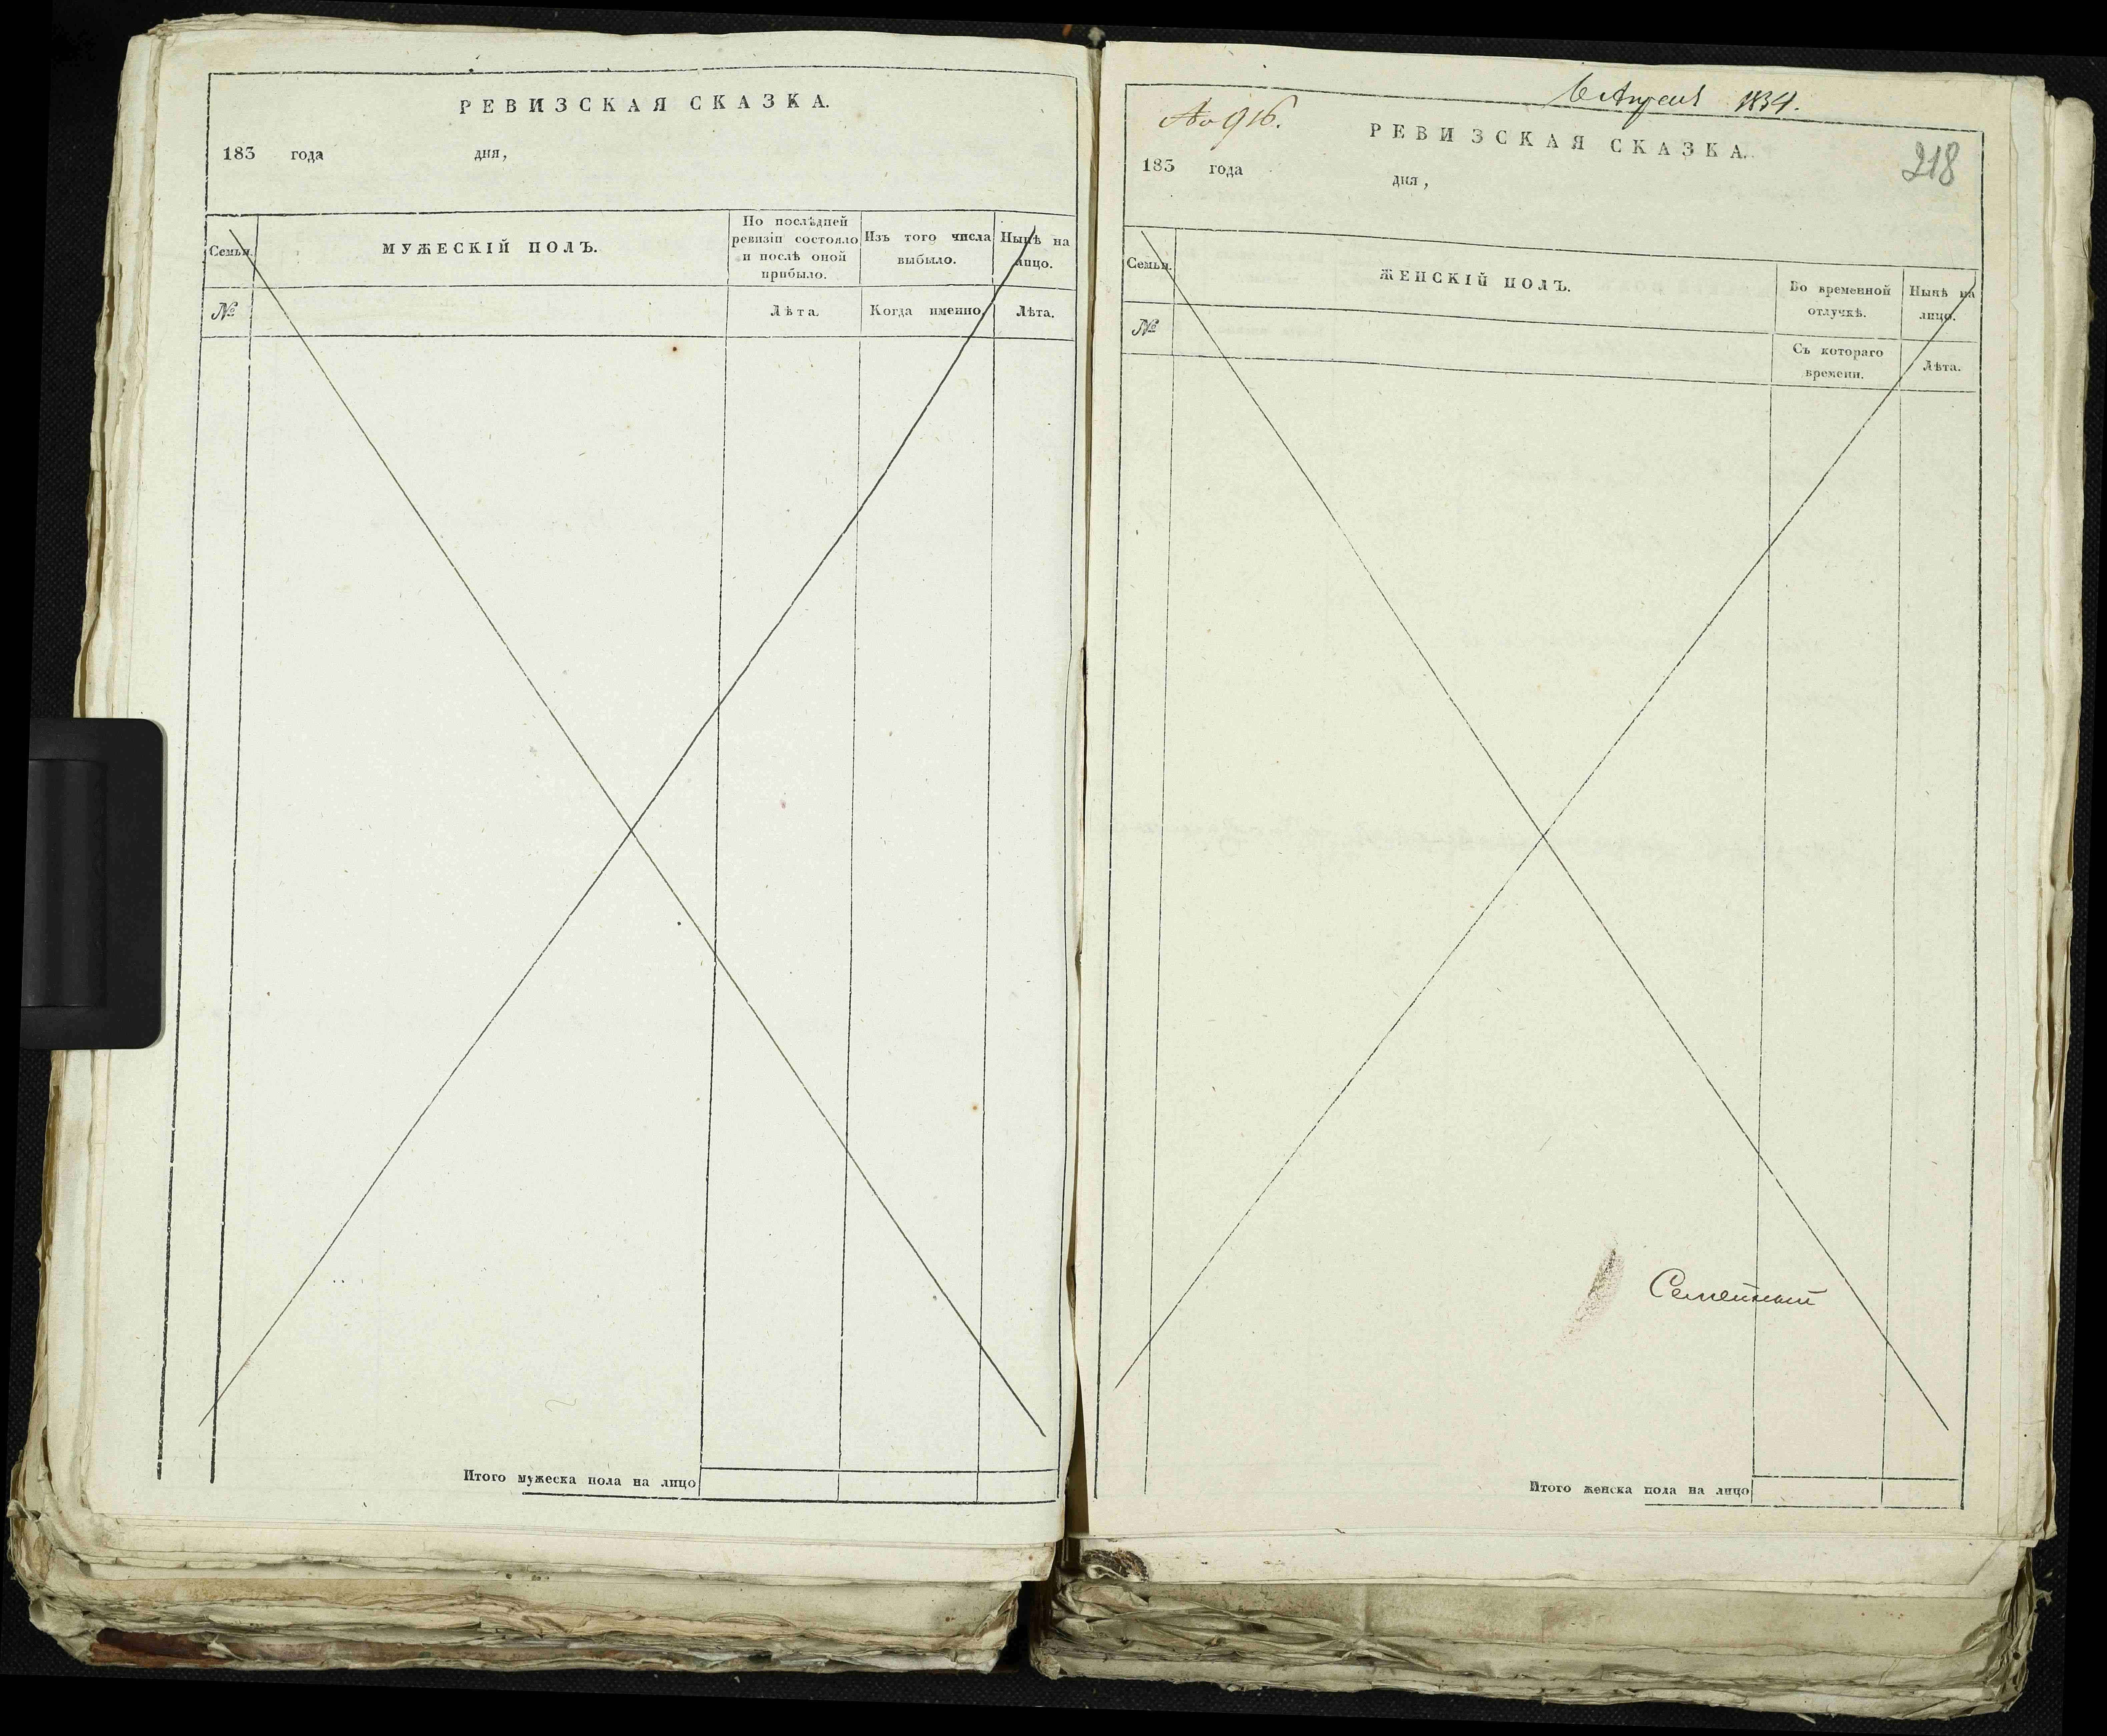 РЕВИЗСКАЯ СКАЗКА.
183 года дня,
Семьи.
МУЖЕСКІЙ ПОЛЪ.
По послѣдней
ревизіи состояло
и послѣ оной
прибыло.
Изъ того числа
выбыло.
Нынѣ на
лицо.
№
Лѣта.
Когда именно.
Лѣта.
Итого мужеска пола на лицо
6 Апреля 1834.
№ 916.
РЕВИЗСКАЯ СКАЗКА.
218
183 года дня,
Семьи.
ЖЕНСКІЙ ПОЛЪ.
Во временной
отлучкѣ.
Нынѣ на
лицо.
№
Съ котораго
времени.
Лѣта.
Семейный
Итого женска пола на лицо